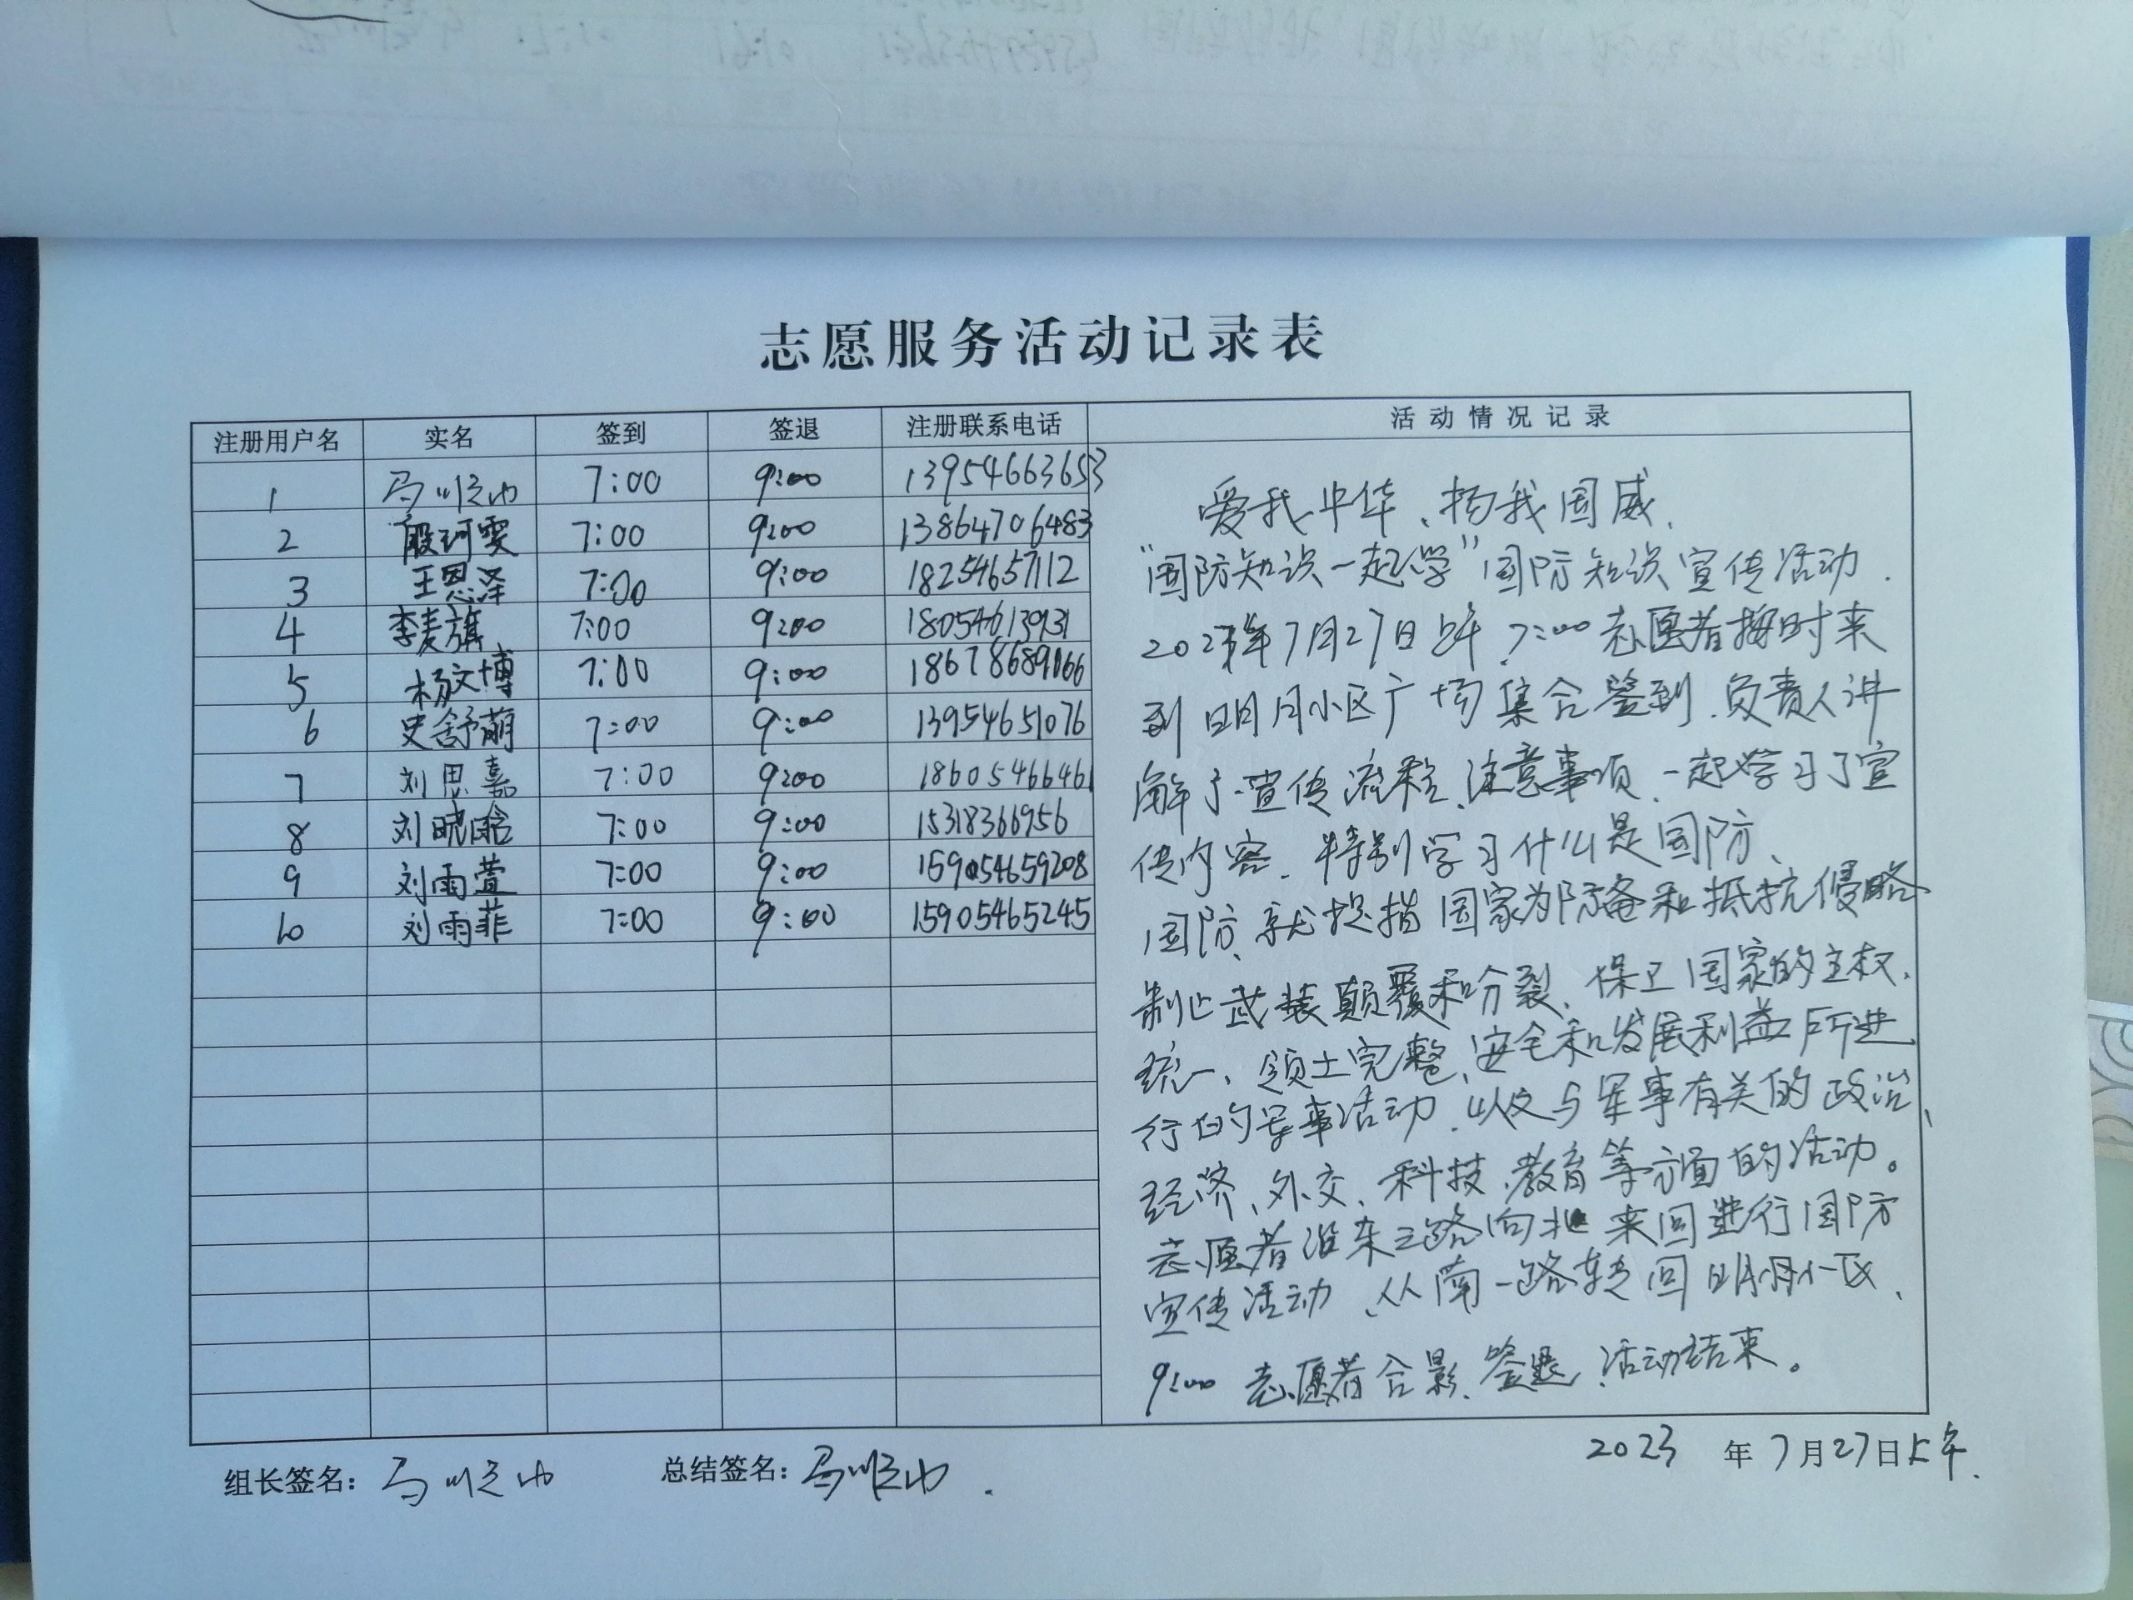 志愿服务活动记录表
注册用户名 实名 签到 签退 注册联系电话 活动情况记录
1 7:00 9:00 13954663653
2 殷珂雯 7:00 9:00 13864706483
3 王恩泽 7:00 9:00 18254657112
4 李麦旗 7:00 9:00 18054613931
5 杨文博 7:00 9:00 18678689166
6 史舒萌 7:00 9:00 13954651076
7 刘思嘉 7:00 9:00 18605466461
8 刘晓晗 7:00 9:00 15318366956
9 刘雨萱 7:00 9:00 159054659208
10 刘雨菲 7:00 9:00 15905465245
爱我中华、扬我国威.
“国防知识一起学”国防知识宣传活动.
2023年7月27日上午.7:00志愿者按时来
到明月小区广场集合签到.负责人讲
解了宣传流程、注意事项.一起学习了宣
传内容.特别学习什么是国防、
国防、就是指国家为防备和抵抗侵略
制止武装颠覆和分裂、保卫国家的主权.
统一、领土完整、安全和发展利益所进
行的军事活动.以及与军事有关的政治、
经济、外交、科技、教育等方面的活动。
志愿者沿东三路向北来回进行国防
宣传活动、从南一路转回明月小区、
9:00 志愿者合影、签退、活动结束。
组长签名: 总结签名: 2023 年7月27日上午.